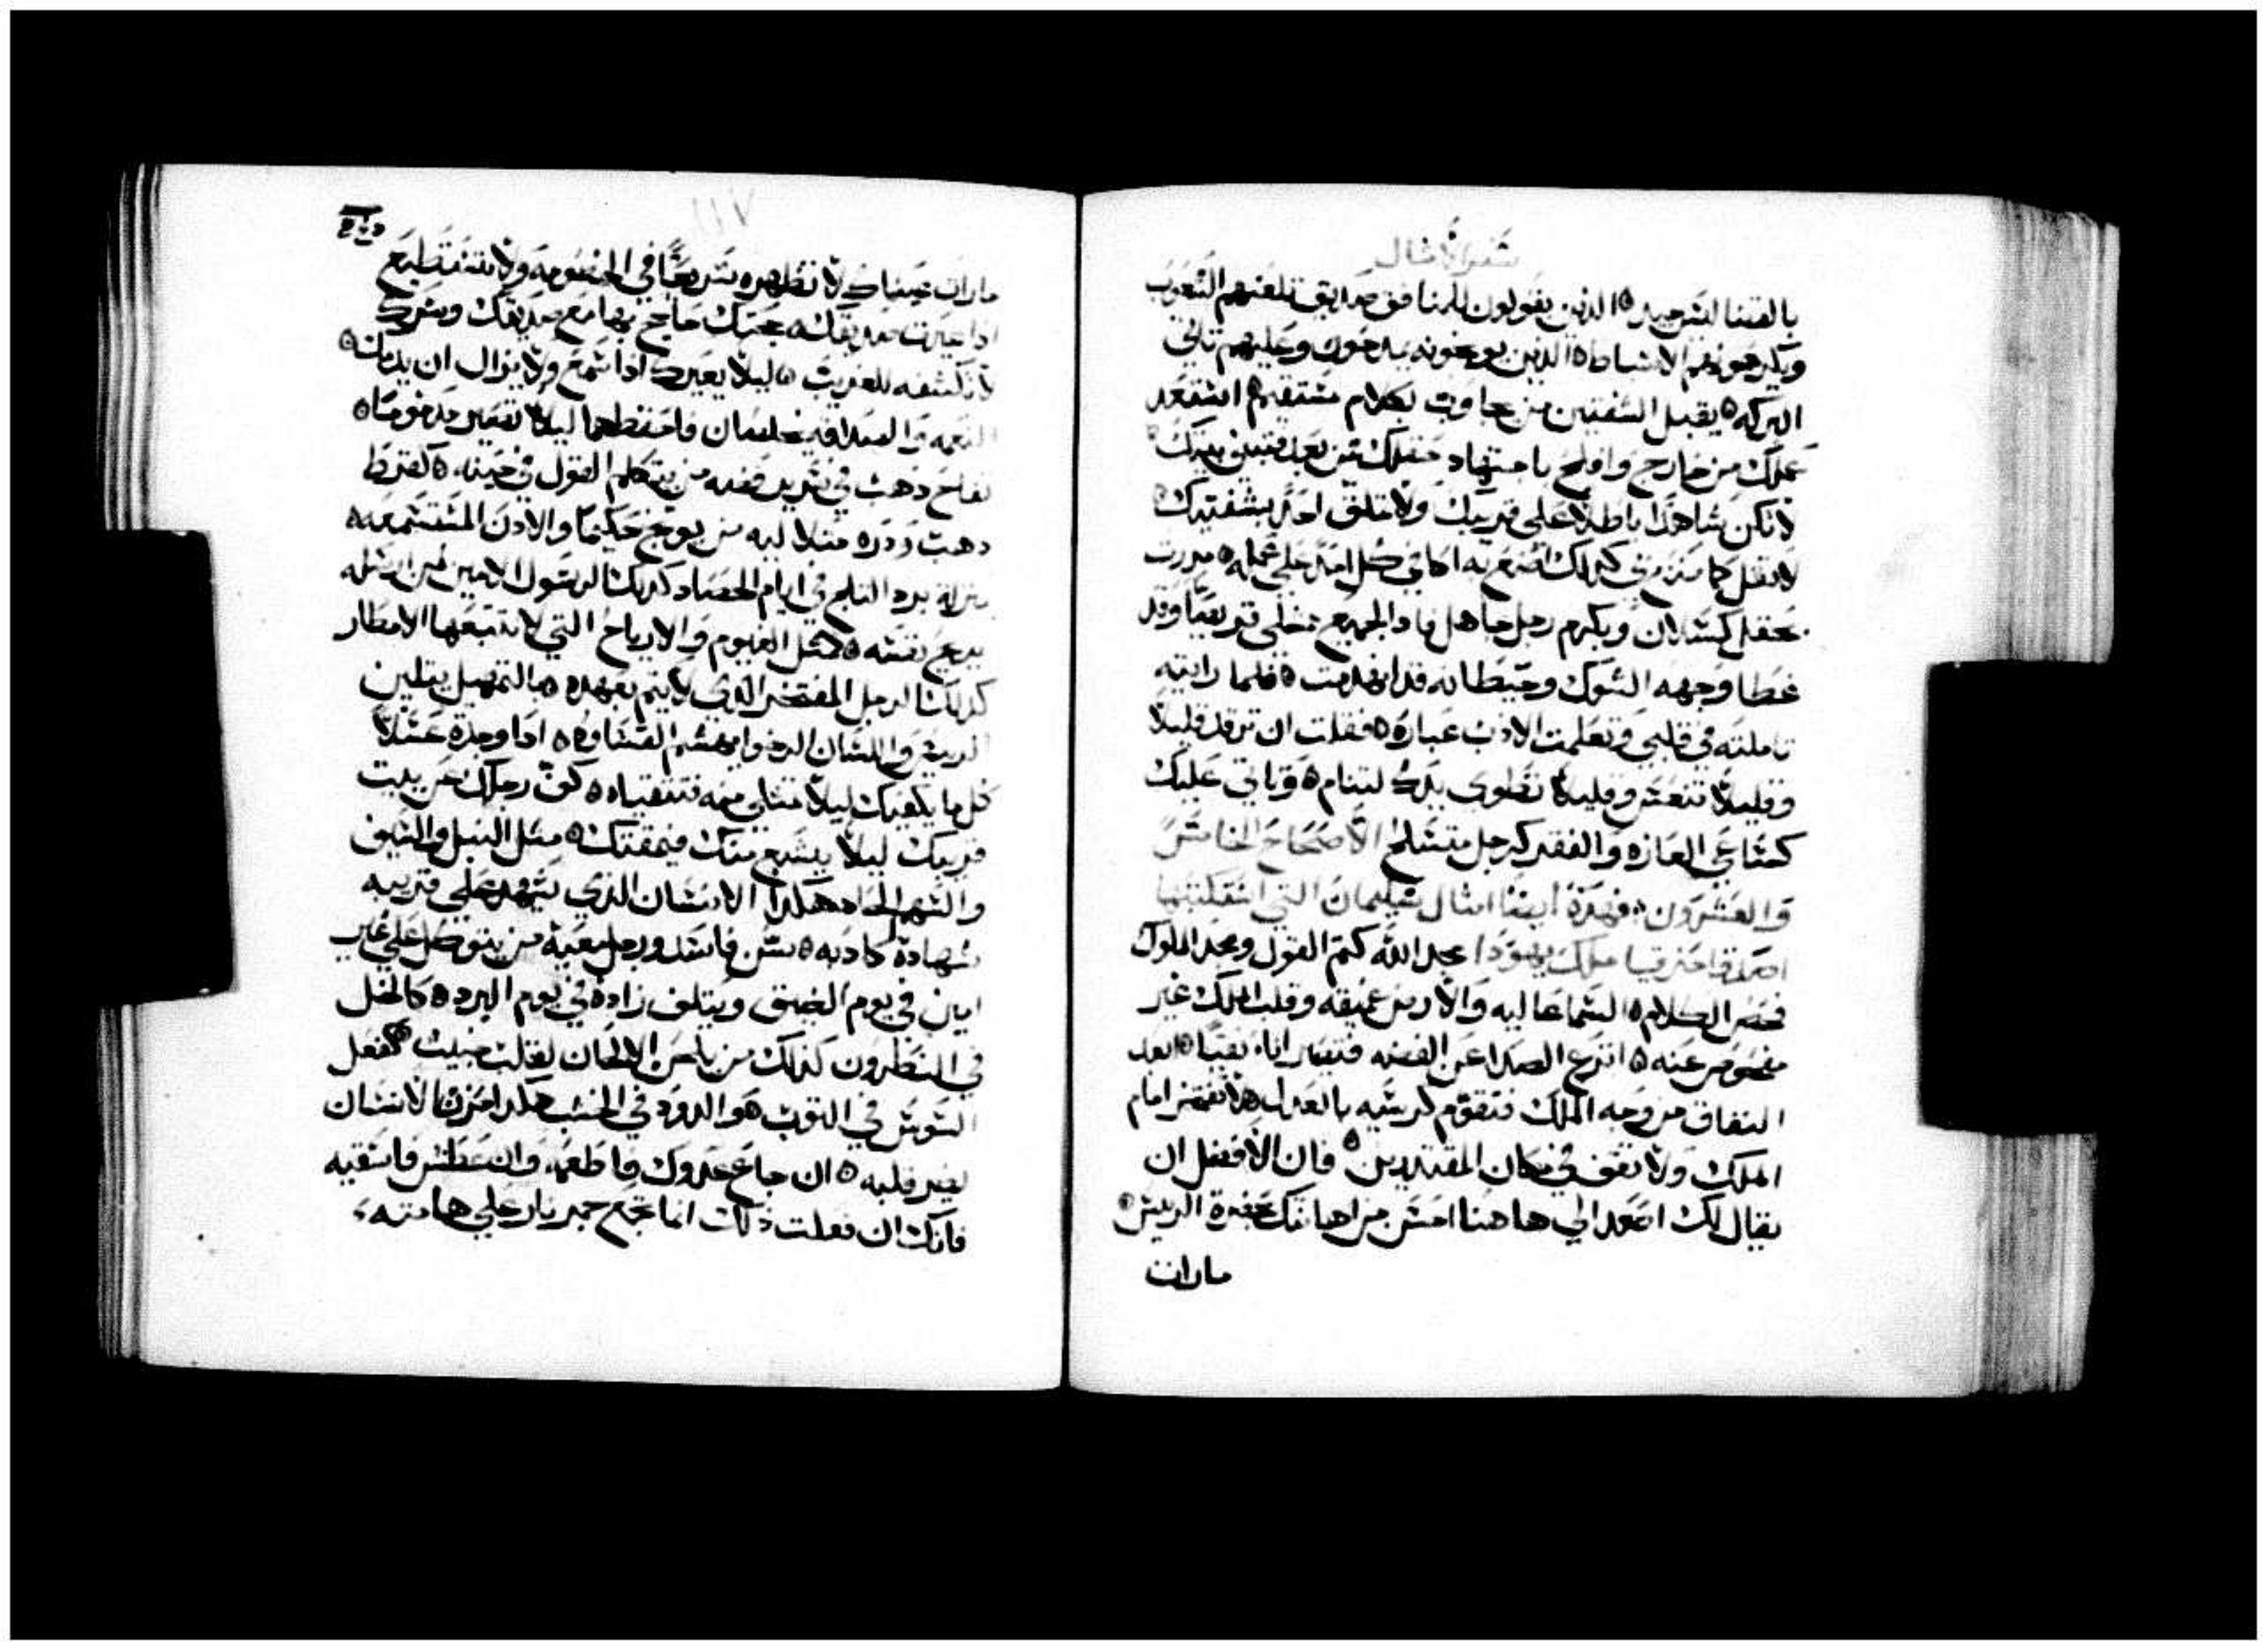 سفر الامثال
بالقضا ليس جيد ه الذين يقولون للمنافق صديق تلعنهم الشعوب
ويكرهونهم الاسباط ه الذين يوبخونه يمدحون وعليهم تاتي
البركه ه يقبل الشفتين من يجاوب بكلام مستقيم ه استعد
عملك من خارج وافلح باجتهاد حقلك من بعد فتبني بيتك
لا تكن شاهدًا باطلا على قريبك ولا تملق احد بشفتيك ه
لا تقل كما صنع بي كذلك اصنع به اكافي كل امرٍ على عمله ه مررت
بحقل كسلان وبكرم رجل جاهل فاد الجميع ممتلى قريصًا وقد
غطا وجهه الشوك وحيطانه قد انهدمت ه فلما رايته
تاملته في قلبي وتعلمت الادب عباره ه فقلت ان ترقد قليلا
وقليلاً تنعس وقليلا تطوي يدك لتنام ه وياتي عليك
كساعي العازه والفقر كرجل متسلح الاصحاح الخامس
والعشرون فهذه ايضا امثال سليمان التي استكتبها
اصدقا حزقيا ملك يهودا مجد الله كتم القول ومجد الملوك
فحص الكلام ه السما عاليه والارض عميقه وقلب الملك غير
مفحوص عنه ه انزع الصدا عن الفضه فتصير اناء نقيًا ه ابعد
النفاق من وجه الملك فتقوم كرسيه بالعدل ه لا تفتخر امام
الملك ولا تقف في مكان المقتدرين ه فان الافضل ان
يقال لك اصعد الي هاهنا احسن من اهانتك بحضرة الريس ه
مارات
١١٧
مارات عيناك لا تظهره سريعًا في الخصومه ولا تستطيع
اذا عيرت صديقك ه حجتك حاجج بها مع صديقك وسرك
لا تكشفه للغريب ه ليلا يعيرك اذا سمع ولا يزال ان يذمك ه
النعمه والصداقه يخلصان فاحتفظهما ليلا تصير مذمومًا ه
تفاح ذهب في سرير فضه من يتكلم القول في حينه ه كقرط
دهب ودره متلالیه من يوبخ حكيمًا والادن المستمعه ه
بمنزلة برد الثلج في ايام الحصاد كذلك الرسول الامين لمن ارسله
يريح نفسه ه مثل الغيوم والارياح التي لا يتبعها الامطار
كذلك الرجل المفتخر الذي لا يتم بعهده ه بالتمهيل يتلين
الريس واللسان الرخو ايهشم القساوه ه اذا وجدة عسلاً
كل ما يكفيك ليلا تمتلى منه فتتقياه ه كف رجلك عن بيت
قريبك ليلا يشبع منك فيمقتك ه مثل النبل والسيف
والسهم الحاد هكذا الانسان الذي يشهد على قريبه
شهادة كادبه ه سن فاسد ورجل معيبة من يتوكل على غير
امين في يوم الضيق ويتلف زاده في يوم البرد ه كالخل
في النطرون كذلك من يلحن الالحان لقلب خبيث كفعل
السوس في الثوب ه والدود في الخشب هكذا حزن الانسان
يضر قلبه ه ان جاع عدوك فاطعمه وان عطش فاسقيه
فانك ان فعلت ذلك انما تجمع جمر نار على هامته ه